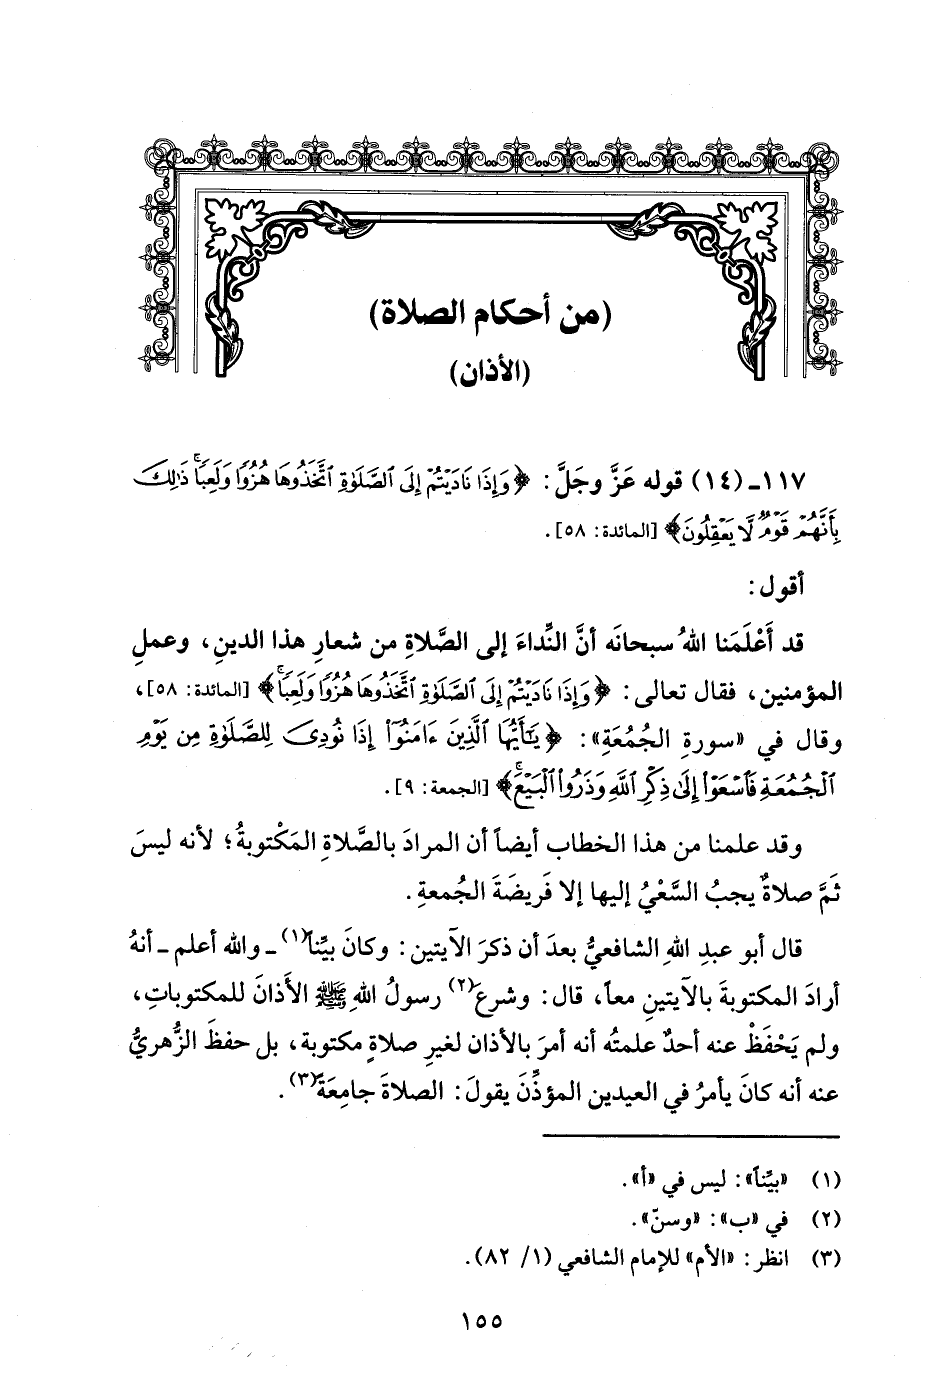 (من أحكام الصلاة)
(الأذان)
١١٧ـ (١٤) قوله عَزَّ وجَلَّ: ﴿وَإِذَا نَادَيْتُمْ إِلَى ٱلصَّلَوٰةِ ٱتَّخَذُوهَا هُزُوًا وَلَعِبًا ۚ ذَٰلِكَ
بِأَنَّهُمْ قَوْمٌ لَّا يَعْقِلُونَ﴾ [المائدة: ٥٨].
أقول:
قد أَعْلَمَنا اللهُ سبحانَه أنَّ النِّداءَ إلى الصَّلاةِ من شعارِ هذا الدينِ، وعملِ
المؤمنين، فقال تعالى: ﴿وَإِذَا نَادَيْتُمْ إِلَى ٱلصَّلَوٰةِ ٱتَّخَذُوهَا هُزُوًا وَلَعِبًا ۚ﴾ [المائدة: ٥٨]،
وقال في «سورةِ الجُمُعَةِ»: ﴿يَـٰٓأَيُّهَا ٱلَّذِينَ ءَامَنُوٓا۟ إِذَا نُودِىَ لِلصَّلَوٰةِ مِن يَوْمِ
ٱلْجُمُعَةِ فَٱسْعَوْا۟ إِلَىٰ ذِكْرِ ٱللَّهِ وَذَرُوا۟ ٱلْبَيْعَ ۚ﴾ [الجمعة: ٩].
وقد علمنا من هذا الخطاب أيضاً أن المرادَ بالصَّلاةِ المَكْتوبةُ؛ لأنه ليسَ
ثَمَّ صلاةٌ يجبُ السَّعْيُ إليها إلا فَريضَةَ الجُمعةِ.
قال أبو عبدِ اللهِ الشافعيُّ بعدَ أن ذكرَ الآيتين: وكانَ بيِّناً(١) ـ والله أعلم ـ أنهُ
أرادَ المكتوبةَ بالآيتينِ معاً، قال: وشرعَ(٢) رسولُ اللهِ ﷺ الأذانَ للمكتوباتِ،
ولم يَحْفَظْ عنه أحدٌ علمتُه أنه أمرَ بالأذان لغيرِ صلاةٍ مكتوبة، بل حفظَ الزُّهريُّ
عنه أنه كانَ يأمرُ في العيدين المؤذِّنَ يقولَ: الصلاةَ جامِعَةً(٣).
(١) «بيِّناً»: ليس في «أ».
(٢) في «ب»: «وسنّ».
(٣) انظر: «الأم» للإمام الشافعي (١/ ٨٢).
١٥٥